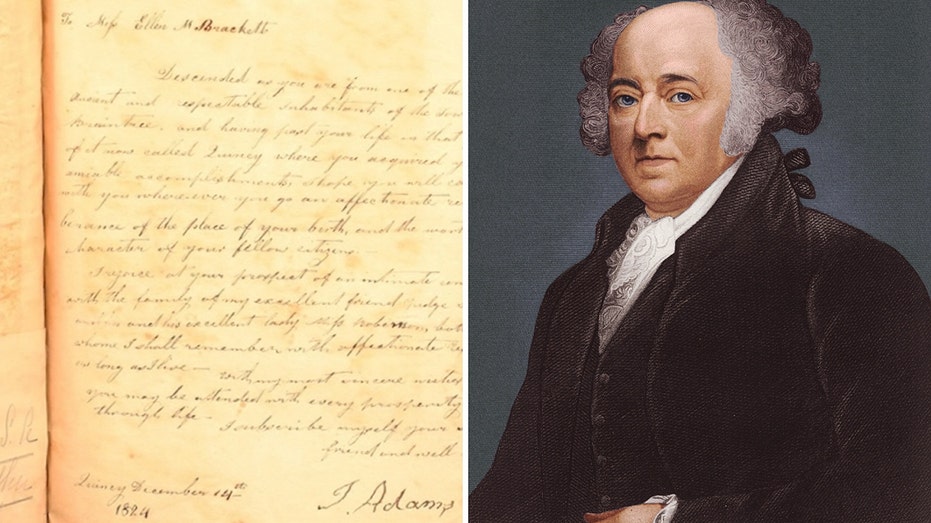 To Miss Ellen M Brackett
Descended as you are from one of the
and respectable Inhabitants of the
Braintree, and having past your life in that
of it now called Quincy where you acquired
amiable accomplishments, I hope you will
with you wherever you go an affectionate re
berance of the place of your birth, and the
character of your fellow citizens—
I rejoice at your prospect of an intimate
with the family of my excellent friend Judge
and his excellent lady Miss
whom I shall remember with affectionate
as long as I live— with my most sincere
you may be attended with every prosperity
through life—
I subscribe myself your
friend and well
Quincy December 14th
1824
J. Adams
S. R